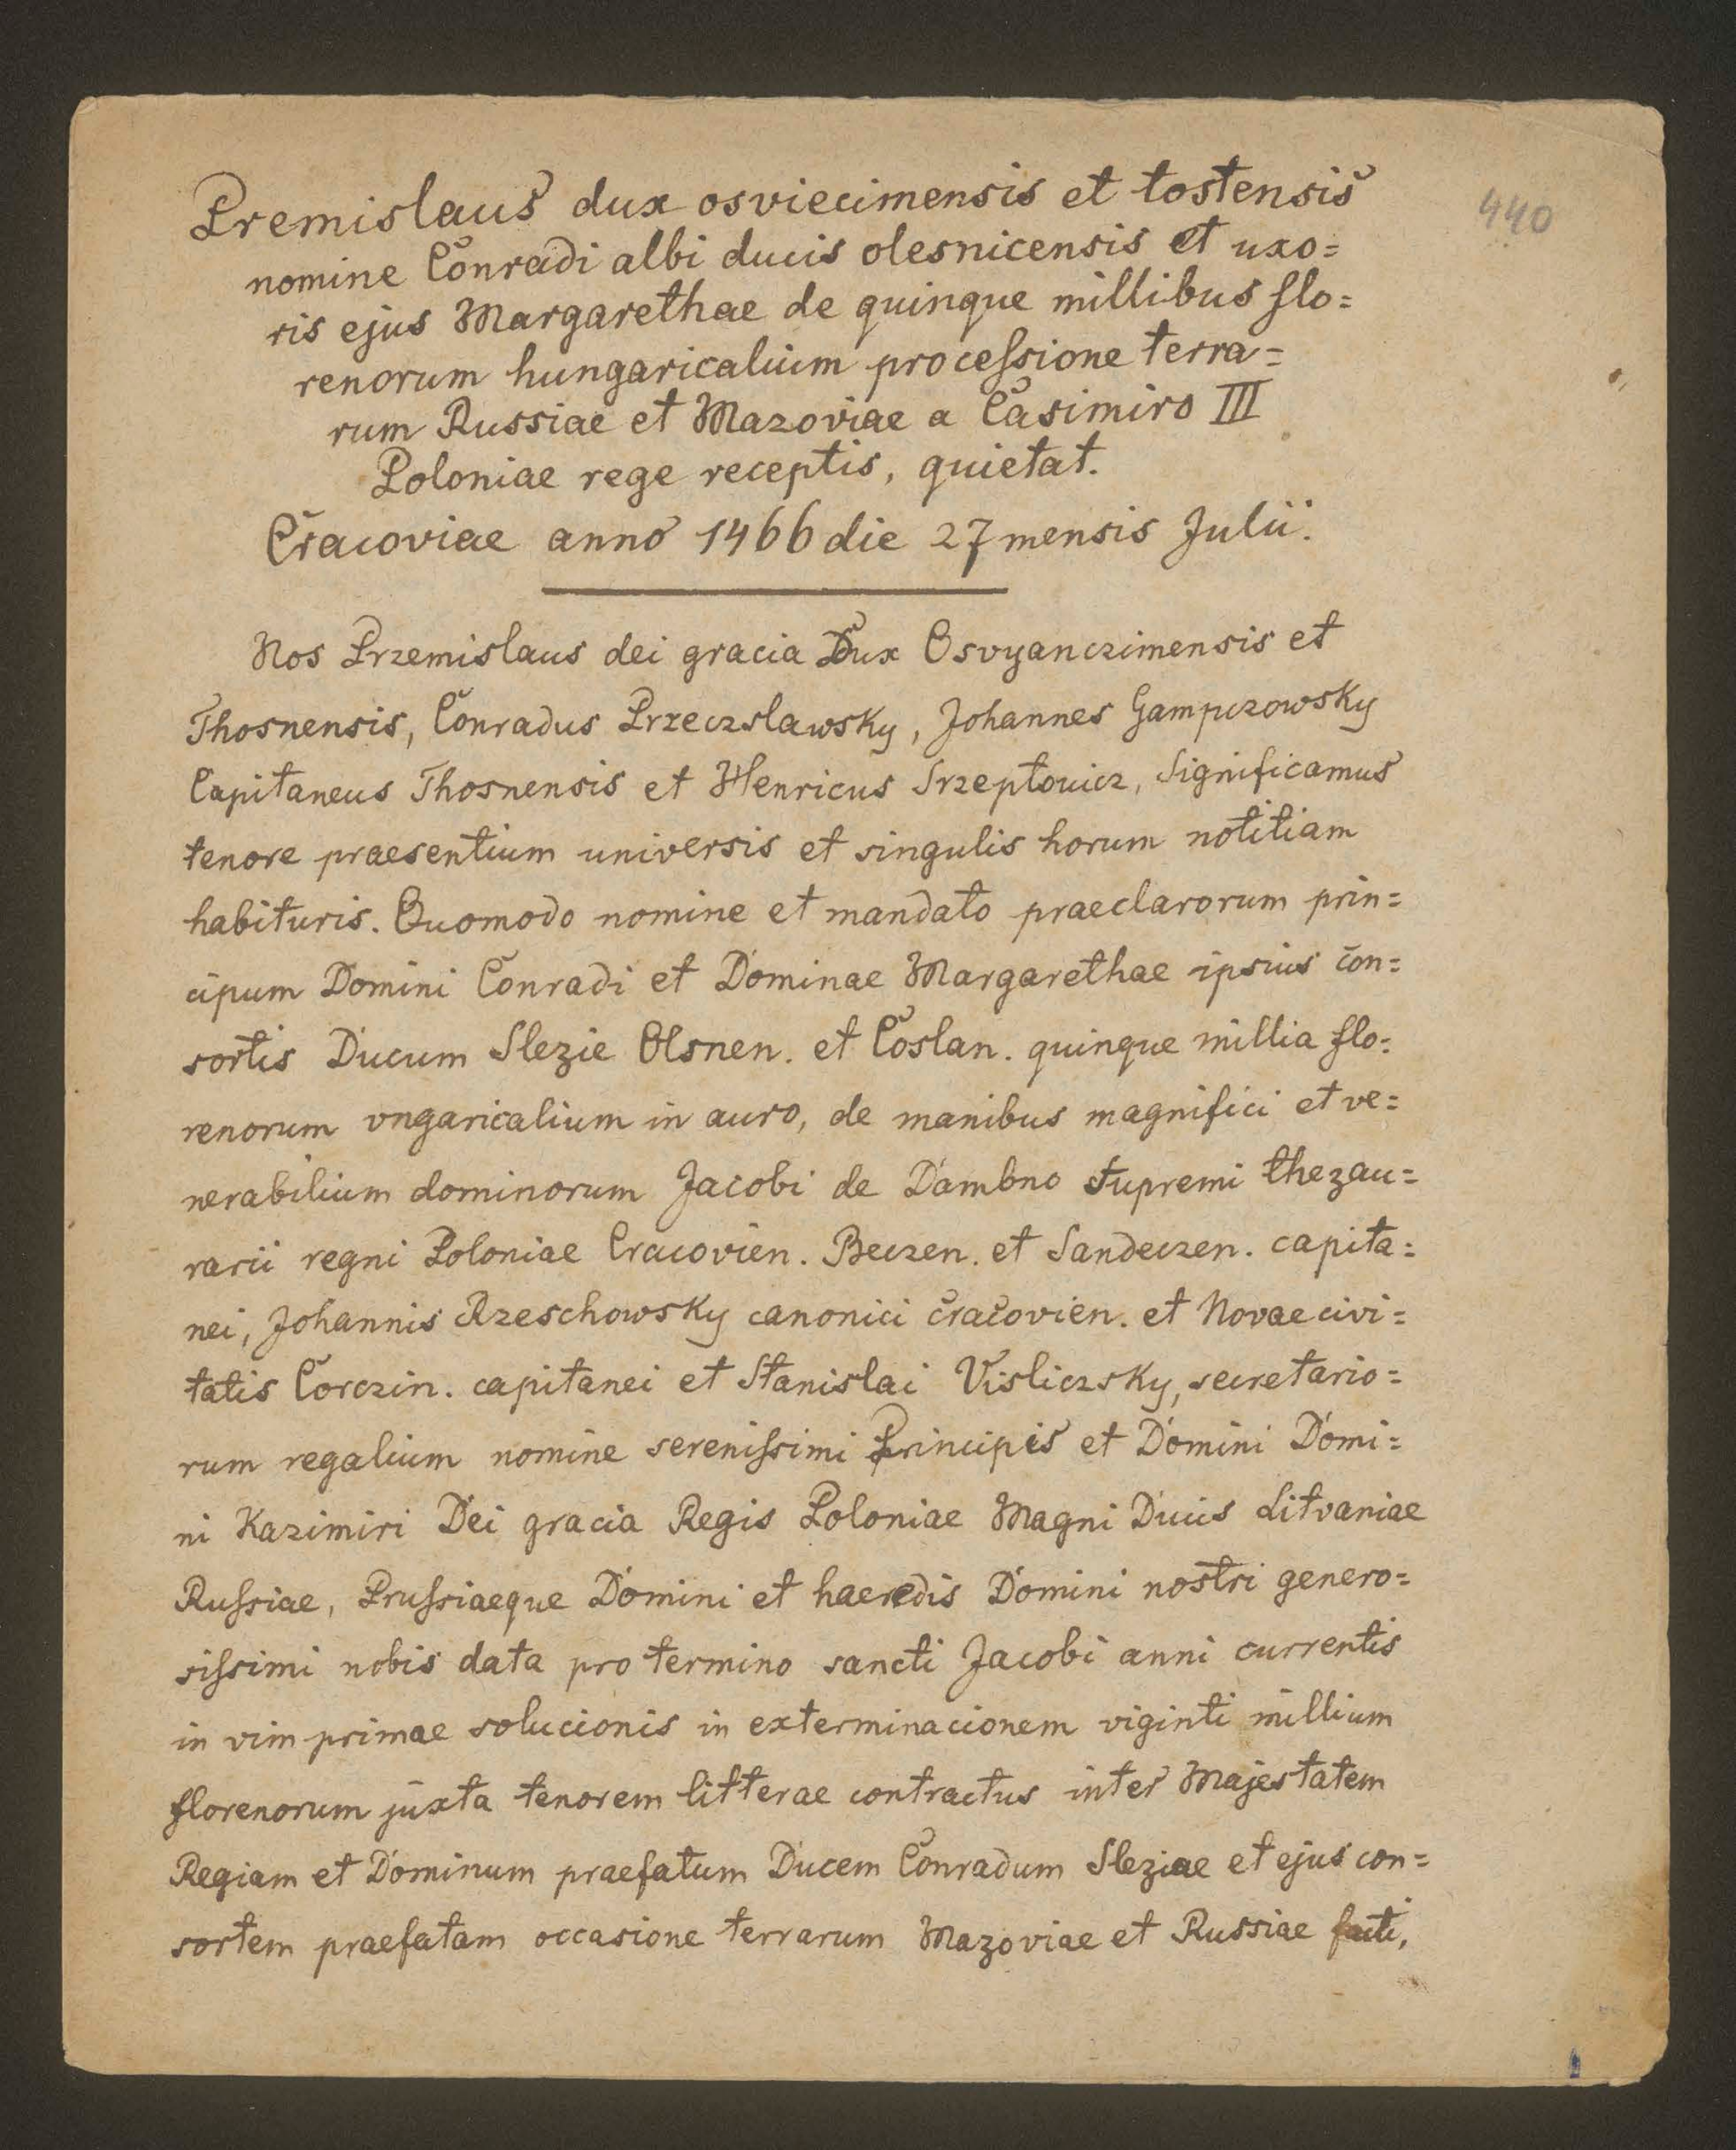 Premislaus dux osviecimensis et tostensis
440
nomine Conradi albi ducis olesnicensis et uxo=
ris ejus Margarethae de quinque millibus flo=
renorum hungaricalium processione terra=
rum Russiae et Mazoviae a Casimiro III
Poloniae rege receptis, quietat.
Cracoviae anno 1466 die 27 mensis Julii.
Nos Przemislaus dei gracia Dux Osvyanczimensis et
Thosnensis, Conradus Przeczslawsky, Johannes Gampczowsky
Capitaneus Thosnensis et Henricus Srzeptovicz, Significamus
tenore praesentium universis et singulis horum notitiam
habituris. Quomodo nomine et mandato praeclarorum prin=
cipum Domini Conradi et Dominae Margarethae ipsius con=
sortis Ducum Slezie Olsnen. et Coslan. quinque millia flo=
renorum vngaricalium in auro, de manibus magnifici et ve=
nerabilium dominorum Jacobi de Dambno Supremi thezau=
rarii regni Poloniae Cracovien. Beczen. et Sandeczen. capita=
nei, Johannis Rzeschowsky canonici cracovien. et Novae civi=
tatis Corczin. capitanei et Stanislai Visliczsky, secretario=
rum regalium nomine serenissimi Principis et Domini Domi=
ni Kazimiri Dei gracia Regis Poloniae Magni Ducis Litvaniae
Russiae, Prussiaeque Domini et haeredis Domini nostri genero=
sissimi nobis data pro termino sancti Jacobi anni currentis
in vim primae solucionis in exterminacionem viginti millium
florenorum juxta tenorem litterae contractus inter Majestatem
Regiam et Dominum praefatum Ducem Conradum Sleziae et ejus con=
sortem praefatam occasione terrarum Mazoviae et Russiae facti,